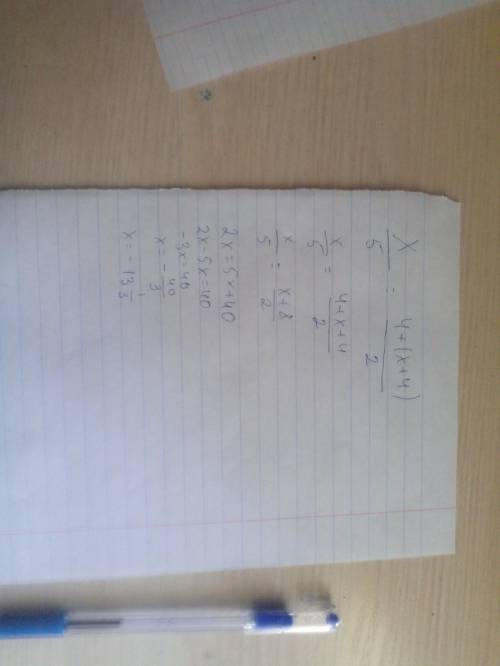 x/5 = 4+(x+4)/2
x/5 = 4+x+4/2
x/5 = x+8/2
2x = 5x+40
2x-5x=40
-3x=40
x=-40/3
x=-13 1/3